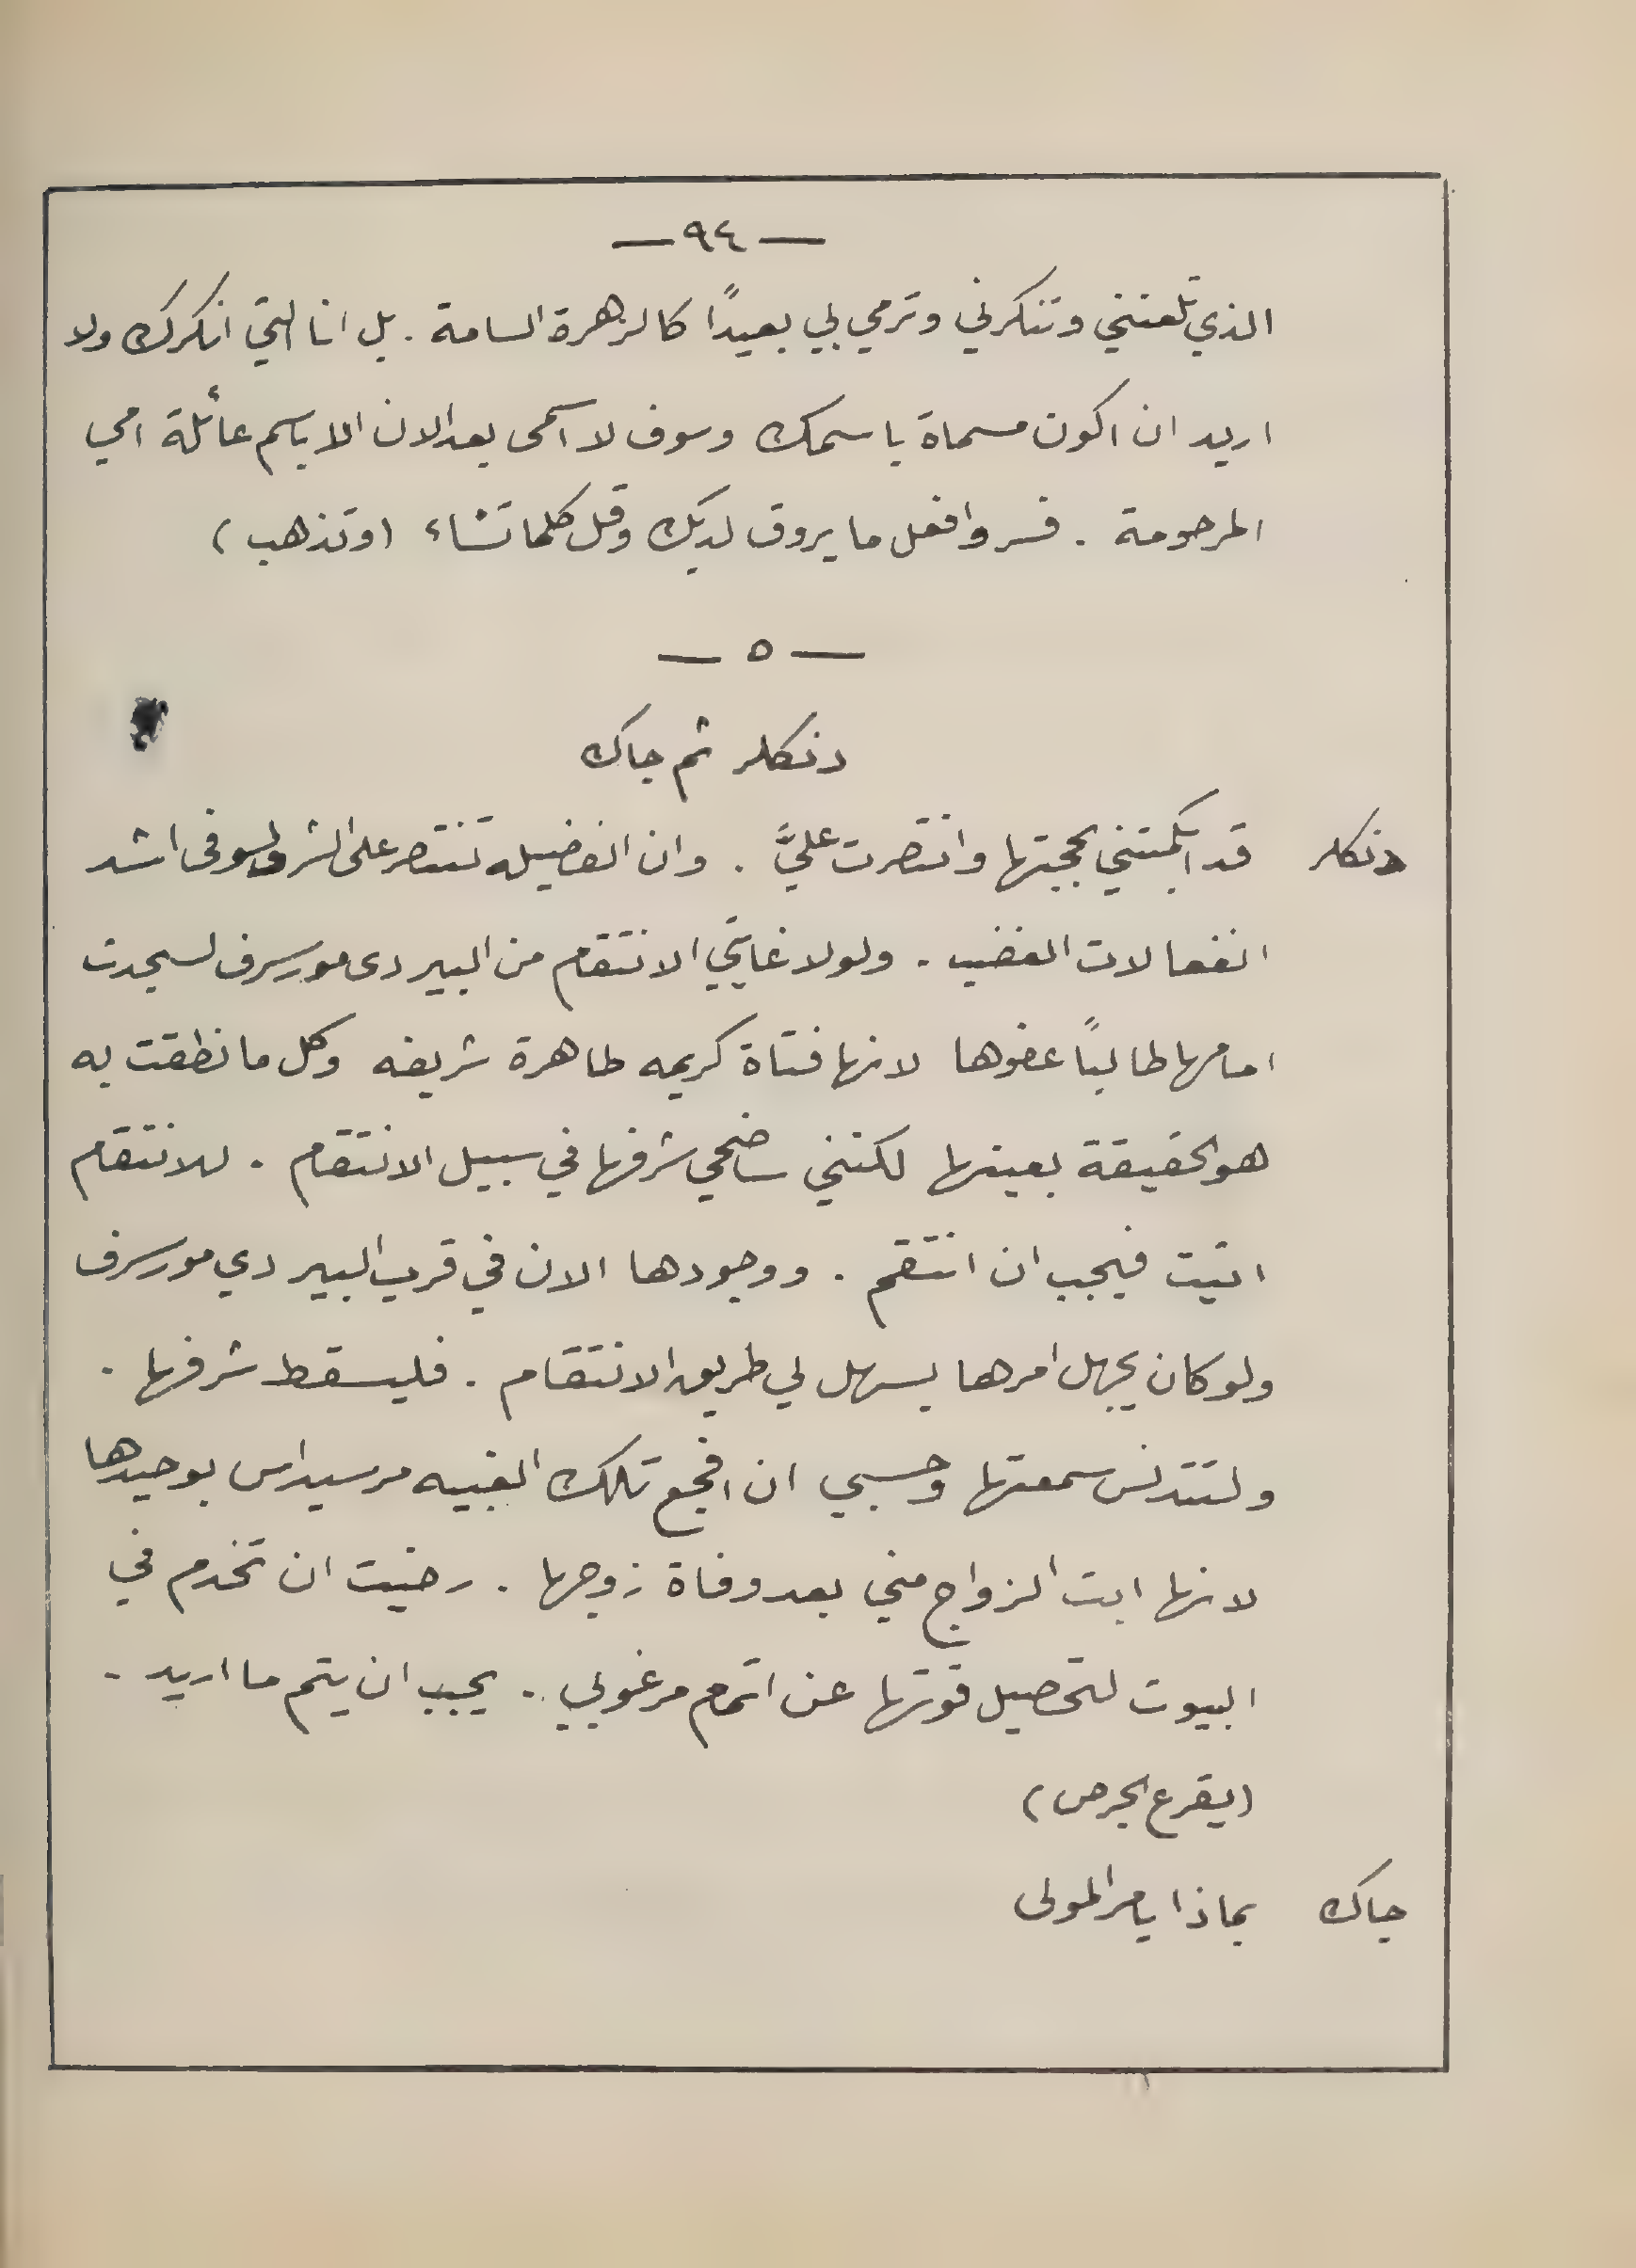 — ٩٤ —
الذي تلعنني وتنكرني وترمي بي بعيدًا كالزهرة السامة . بل انا التي انكرك ولا
اريد ان اكون مسماة باسمك وسوف لا اسمى بعد الان الا باسم عائلة امي
المرحومة . فسر وافعل ما يروق لديك وقل كلما تشاء (وتذهب)
— ٥ —
دنكلر ثم جاك
دنكلر قد ابكمتني بحجتها وانتصرت عليَّ . وان الفضيله تنتصر على الشر ولو في اشد
انفعالات الغضب . ولولا غايتي الانتقام من البير دى مورسرف لسجدت
امامها طالبًا عفوها لانها فتاة كريمه طاهرة شريفه وكل ما نطقت به
هو الحقيقة بعينها لكنني ساضحي شرفها في سبيل الانتقام . للانتقام
اتيت فيجب ان انتقم . ووجودها الان في قرب البير دي مورسرف
ولو كان يجهل امرها يسهل لي طريق الانتقام . فليسقط شرفها .
ولتتدنس سمعتها وحسبي ان افجع تلك الغبيه مرسيداس بوحيدها
لانها ابت الزواج مني بعد وفاة زوجها . رضيت ان تخدم في
البيوت لتحصيل قوتها عن اتمام مرغوبي . يجب ان يتم ما اريد .
(يقرع الجرص)
جاك بماذا يامر المولى